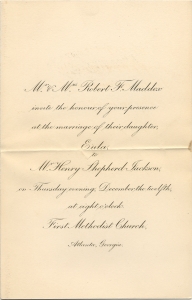 Mr. & Mrs. Robert F. Maddox
invite the honour of your presence
at the marriage of their daughter,
Eula,
to
Mr. Henry Shepherd Jackson,
on Thursday evening, December the twelfth,
at eight o'clock.
First Methodist Church,
Atlanta, Georgia